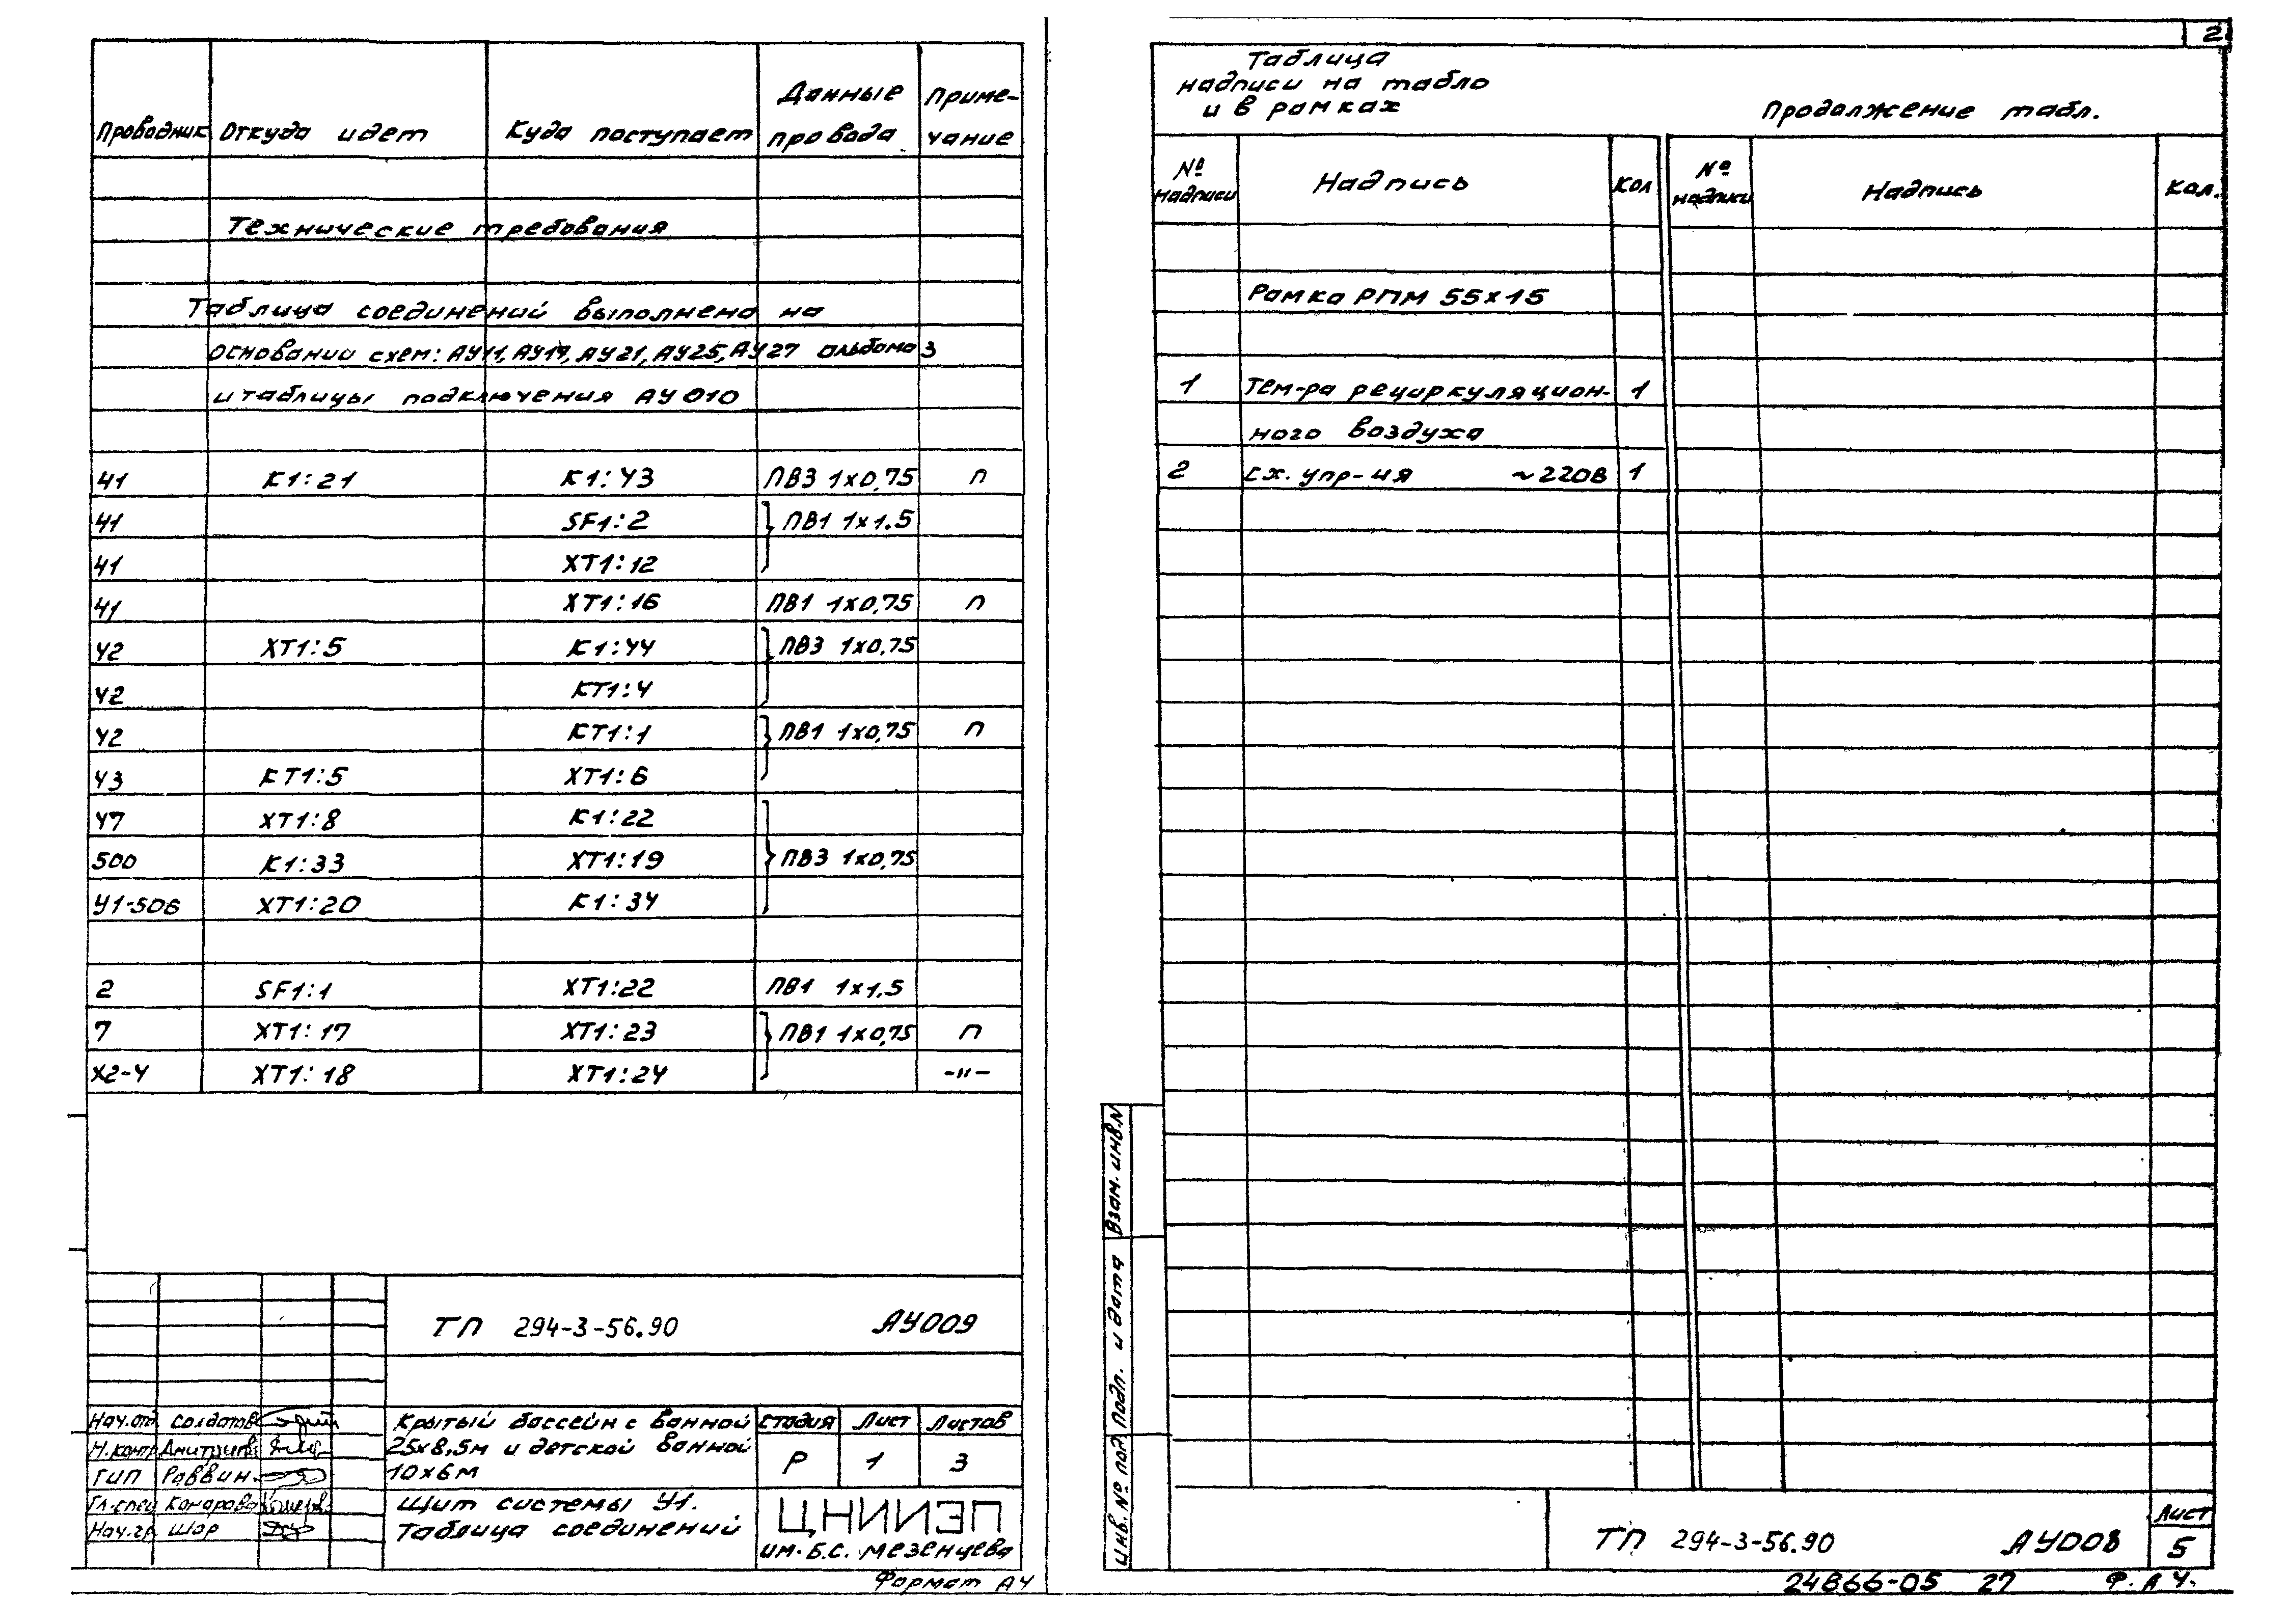 Проводник Откуда идет Куда поступает Данные провода Приме-чание
Технические требования
Таблица соединений выполнена на
основании схем: АУ11, АУ17, АУ21, АУ25, АУ27 альбома 3
и таблицы подключения АУ010
41 К1:21 К1:43 ПВ3 1х0,75 п
41 SF1:2 ПВ1 1х1.5
41 ХТ1:12
41 ХТ1:16 ПВ1 1х0,75 п
42 ХТ1:5 К1:44 ПВ3 1х0,75
42 КТ1:4
42 КТ1:1 ПВ1 1х0,75 п
43 КТ1:5 ХТ1:6
47 ХТ1:8 К1:22
500 К1:33 ХТ1:19 ПВ3 1х0,75
У1-506 ХТ1:20 К1:34
2 SF1:1 ХТ1:22 ПВ1 1х1,5
7 ХТ1:17 ХТ1:23 ПВ1 1х0,75 п
Х2-4 ХТ1:18 ХТ1:24 -"-
ТП 294-3-56.90 АУ009
Нач.отд Солдатов
Н.контр Дмитриев
ГИП Раввин
Гл.спец Комарова
Нач.гр. Шор
Крытый бассейн с ванной
25х8,5м и детской ванной
10х6м
Стадия Лист Листов
Р 1 3
Щит системы У1.
Таблица соединений
ЦНИИЭП
им. Б.С. Мезенцева
Формат А4
2
Таблица
надписи на табло
и в рамках
Продолжение табл.
№ надписи Надпись Кол № надписи Надпись Кол.
Рамка РПМ 55х15
1 Тем-ра рециркуляцион- 1
ного воздуха
2 Сх. упр-ия ~220В 1
Взам. инв.N
Подп. и дата
Инв. № под
ТП 294-3-56.90 АУ008
Лист
5
24866-05 27 Ф. А 4.